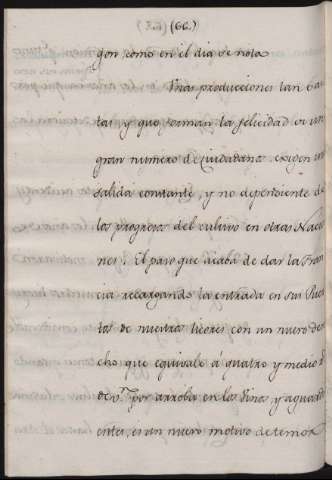 (66.)
gon como en el dia se nota.
Unas producciones tan bas
tas y que forman la felicidad de un
gran numero de Ciudadanos exigen un
salida constante, y no dependiente de
los progresos del cultivo en otras Nacio
nes. El paso que acaba de dar la Fran
cia recargando la entrada en sus Puer
tos de nuestros licores con un nuevo dere
cho que equivale á quatro y medio r.
de v.n por arroba en los vinos, y aguardi
entes, es un nuevo motivo de temor